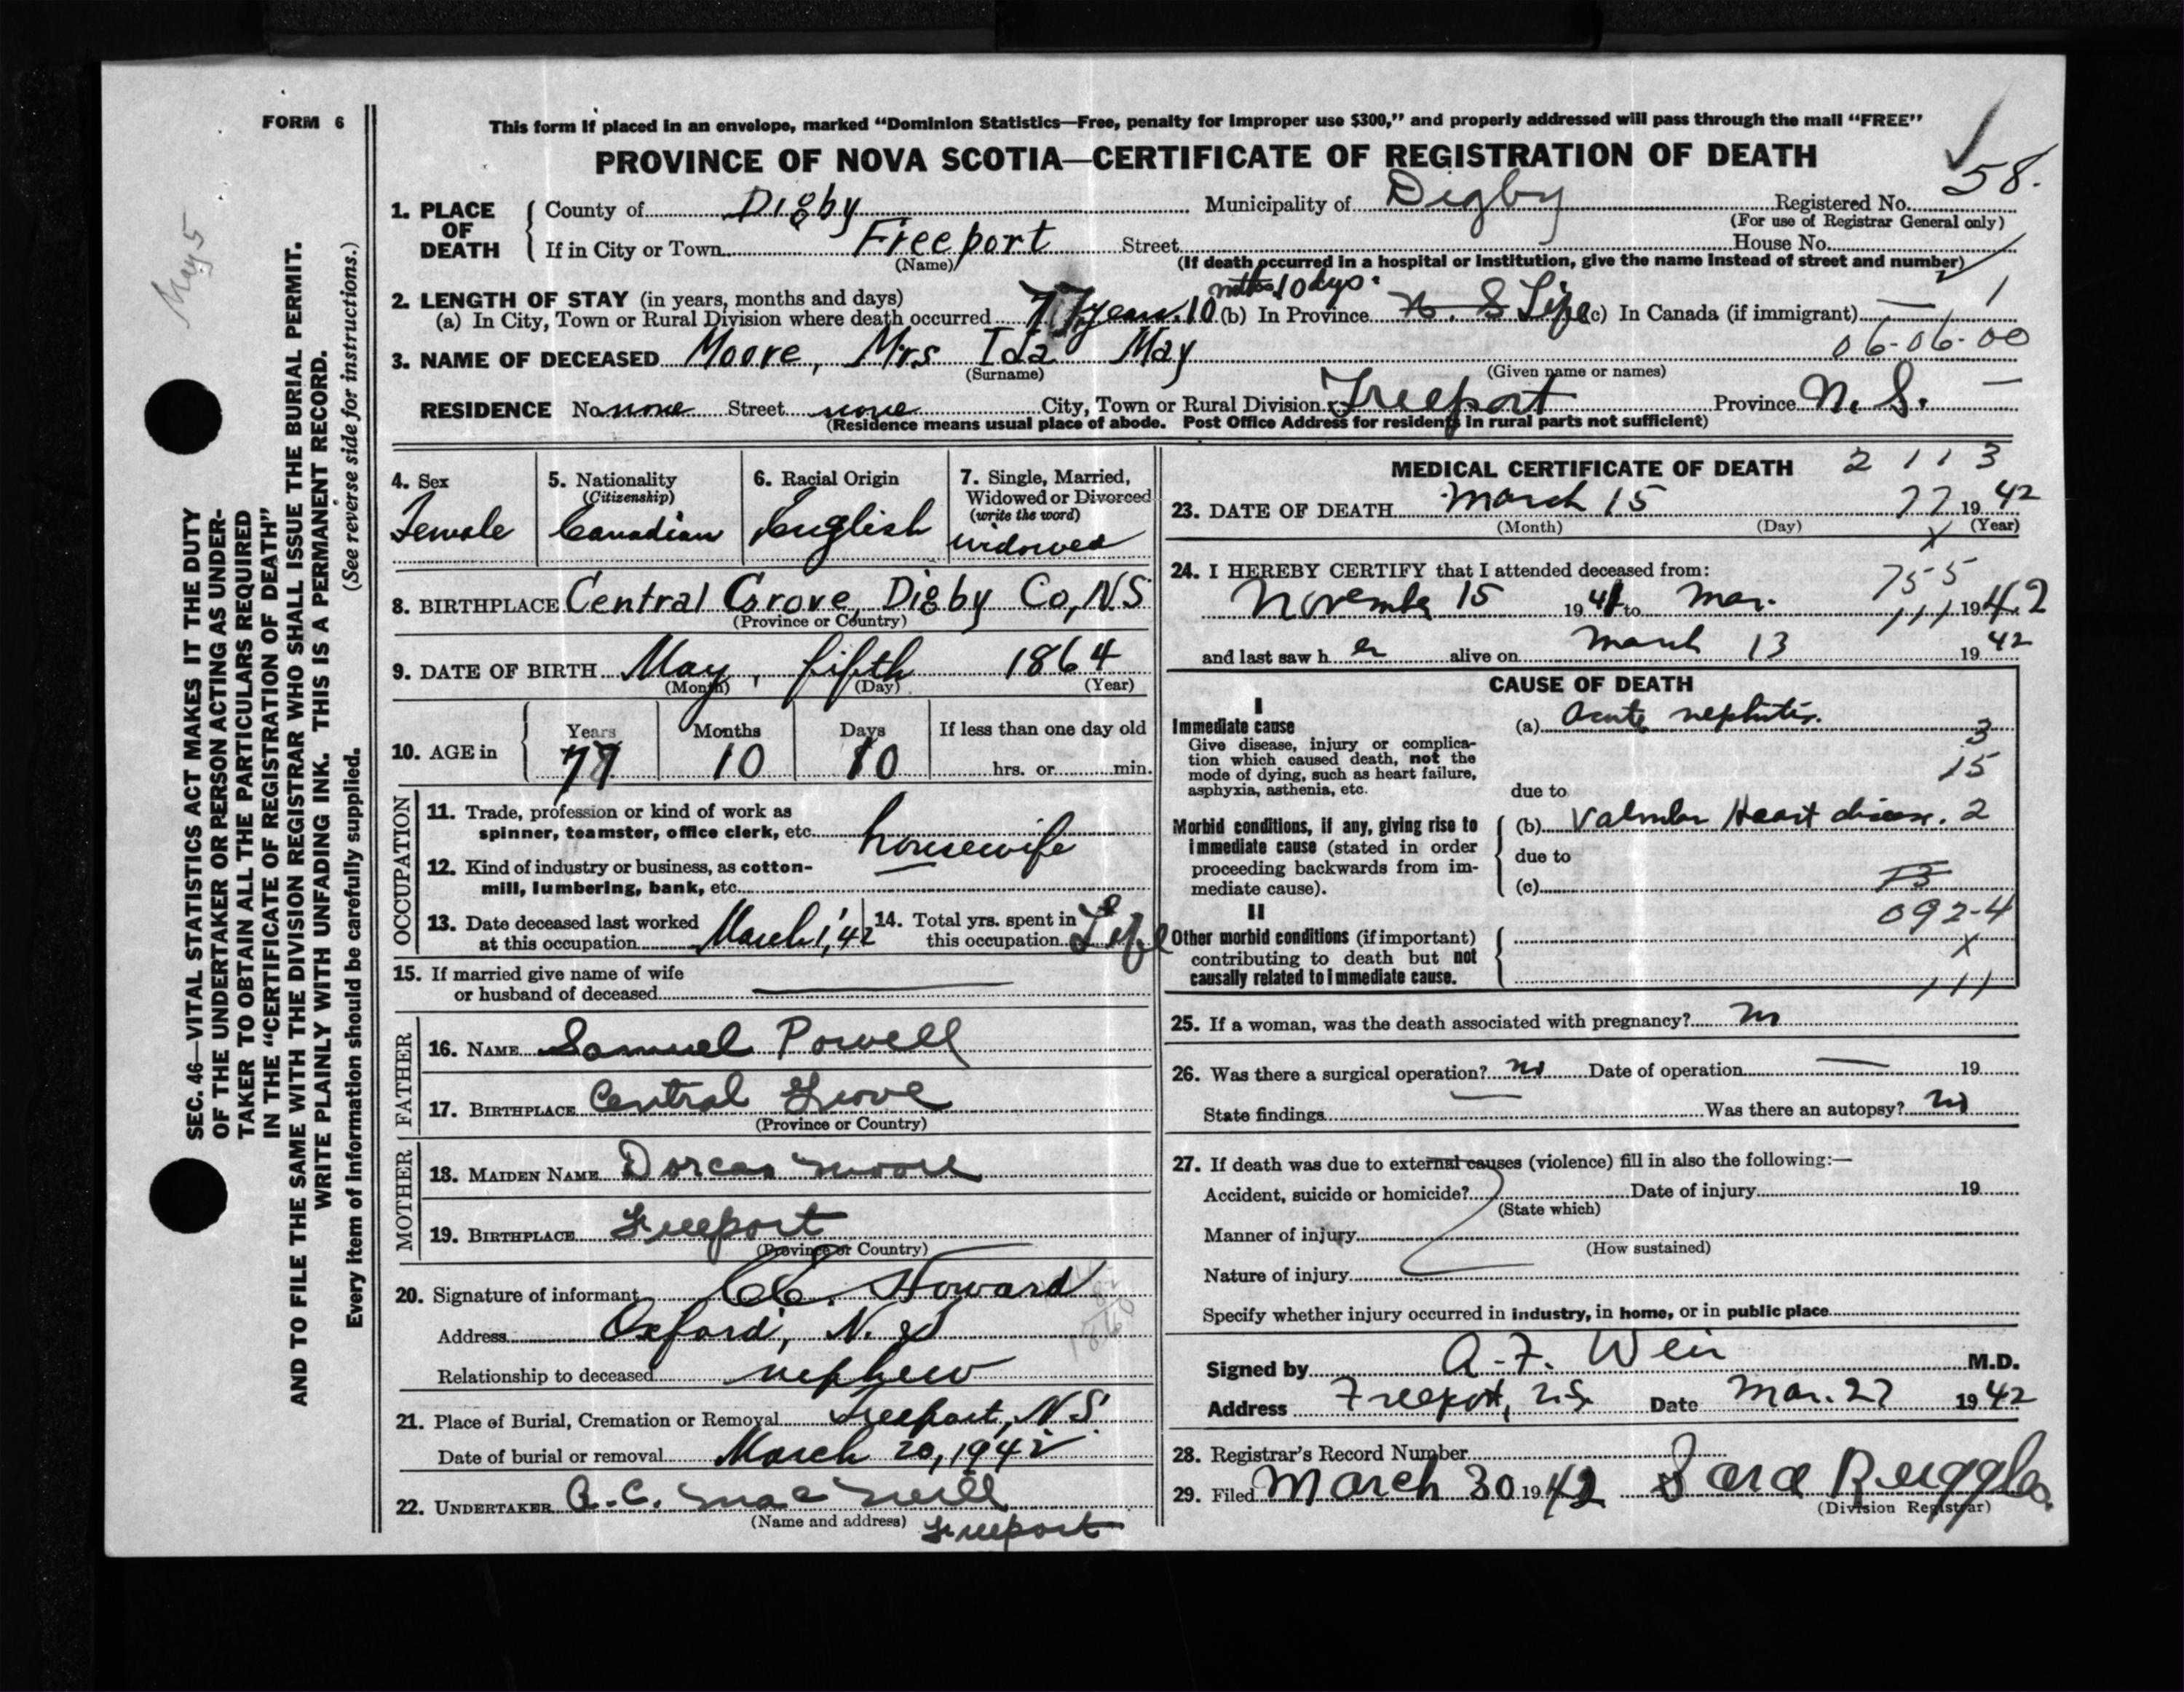 FORM 6
This form if placed in an envelope, marked “Dominion Statistics—Free, penalty for improper use $300,” and properly addressed will pass through the mail “FREE”
PROVINCE OF NOVA SCOTIA—CERTIFICATE OF REGISTRATION OF DEATH
58.
May 5
SEC. 46—VITAL STATISTICS ACT MAKES IT THE DUTY
OF THE UNDERTAKER OR PERSON ACTING AS UNDER-
TAKER TO OBTAIN ALL THE PARTICULARS REQUIRED
IN THE “CERTIFICATE OF REGISTRATION OF DEATH”
AND TO FILE THE SAME WITH THE DIVISION REGISTRAR WHO SHALL ISSUE THE BURIAL PERMIT.
WRITE PLAINLY WITH UNFADING INK. THIS IS A PERMANENT RECORD.
Every item of information should be carefully supplied. (See reverse side for instructions.)
1. PLACE OF DEATH
County of Digby Municipality of Digby Registered No.
(For use of Registrar General only)
If in City or Town Freeport Street House No.
(Name) (If death occurred in a hospital or institution, give the name instead of street and number)
2. LENGTH OF STAY (in years, months and days)
(a) In City, Town or Rural Division where death occurred 77 years 10 mths 10 dys. (b) In Province N. S Life (c) In Canada (if immigrant) — 1
06-06-00
3. NAME OF DECEASED Moore, Mrs Ida May
(Surname) (Given name or names)
RESIDENCE No none Street none City, Town or Rural Division Freeport Province N. S. —
(Residence means usual place of abode. Post Office Address for residents in rural parts not sufficient)
4. Sex
Female
5. Nationality
(Citizenship)
Canadian
6. Racial Origin
English
7. Single, Married,
Widowed or Divorced
(write the word)
widowed
8. BIRTHPLACE Central Grove, Digby Co, NS
(Province or Country)
9. DATE OF BIRTH May, fifth 1864
(Month) (Day) (Year)
10. AGE in
Years Months Days If less than one day old
77 10 10 hrs. or min.
OCCUPATION
11. Trade, profession or kind of work as
spinner, teamster, office clerk, etc. housewife
12. Kind of industry or business, as cotton-
mill, lumbering, bank, etc.
13. Date deceased last worked
at this occupation March 1, '42
14. Total yrs. spent in
this occupation Life
15. If married give name of wife
or husband of deceased
FATHER
16. NAME Samuel Powell
17. BIRTHPLACE Central Grove
(Province or Country)
MOTHER
18. MAIDEN NAME Dorcas Moore
19. BIRTHPLACE Freeport
(Province or Country)
20. Signature of informant Howard
Address Oxford, N. S
Relationship to deceased nephew
21. Place of Burial, Cremation or Removal Freeport, N.S.
Date of burial or removal March 20, 1942
22. UNDERTAKER A. C. MacNeill
(Name and address) Freeport
MEDICAL CERTIFICATE OF DEATH 2 1 1 3
23. DATE OF DEATH March 15 77 1942
(Month) (Day) (Year)
X
24. I HEREBY CERTIFY that I attended deceased from:
755
November 15 1941 to Mar. 111 1942
and last saw her alive on March 13 1942
CAUSE OF DEATH
I
Immediate cause
Give disease, injury or complica-
tion which caused death, not the
mode of dying, such as heart failure,
asphyxia, asthenia, etc.
(a) Acute nephritis.
3
15
due to
Morbid conditions, if any, giving rise to
immediate cause (stated in order
proceeding backwards from im-
mediate cause).
(b) Valvular Heart disease. 2
due to
(c)
092-4
II
Other morbid conditions (if important)
contributing to death but not
causally related to immediate cause.
X
111
25. If a woman, was the death associated with pregnancy? no
26. Was there a surgical operation? no Date of operation — 19
State findings — Was there an autopsy? no
27. If death was due to external causes (violence) fill in also the following:—
Accident, suicide or homicide? Date of injury 19
(State which)
Manner of injury
(How sustained)
Nature of injury
Specify whether injury occurred in industry, in home, or in public place
Signed by A. F. Weir M.D.
Address Freeport, N.S. Date Mar. 27 1942
28. Registrar's Record Number
29. Filed March 30 1942 Sara Ruggles
(Division Registrar)